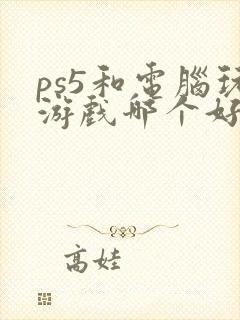 ps5和電腦玩
游戲哪个好
高娃